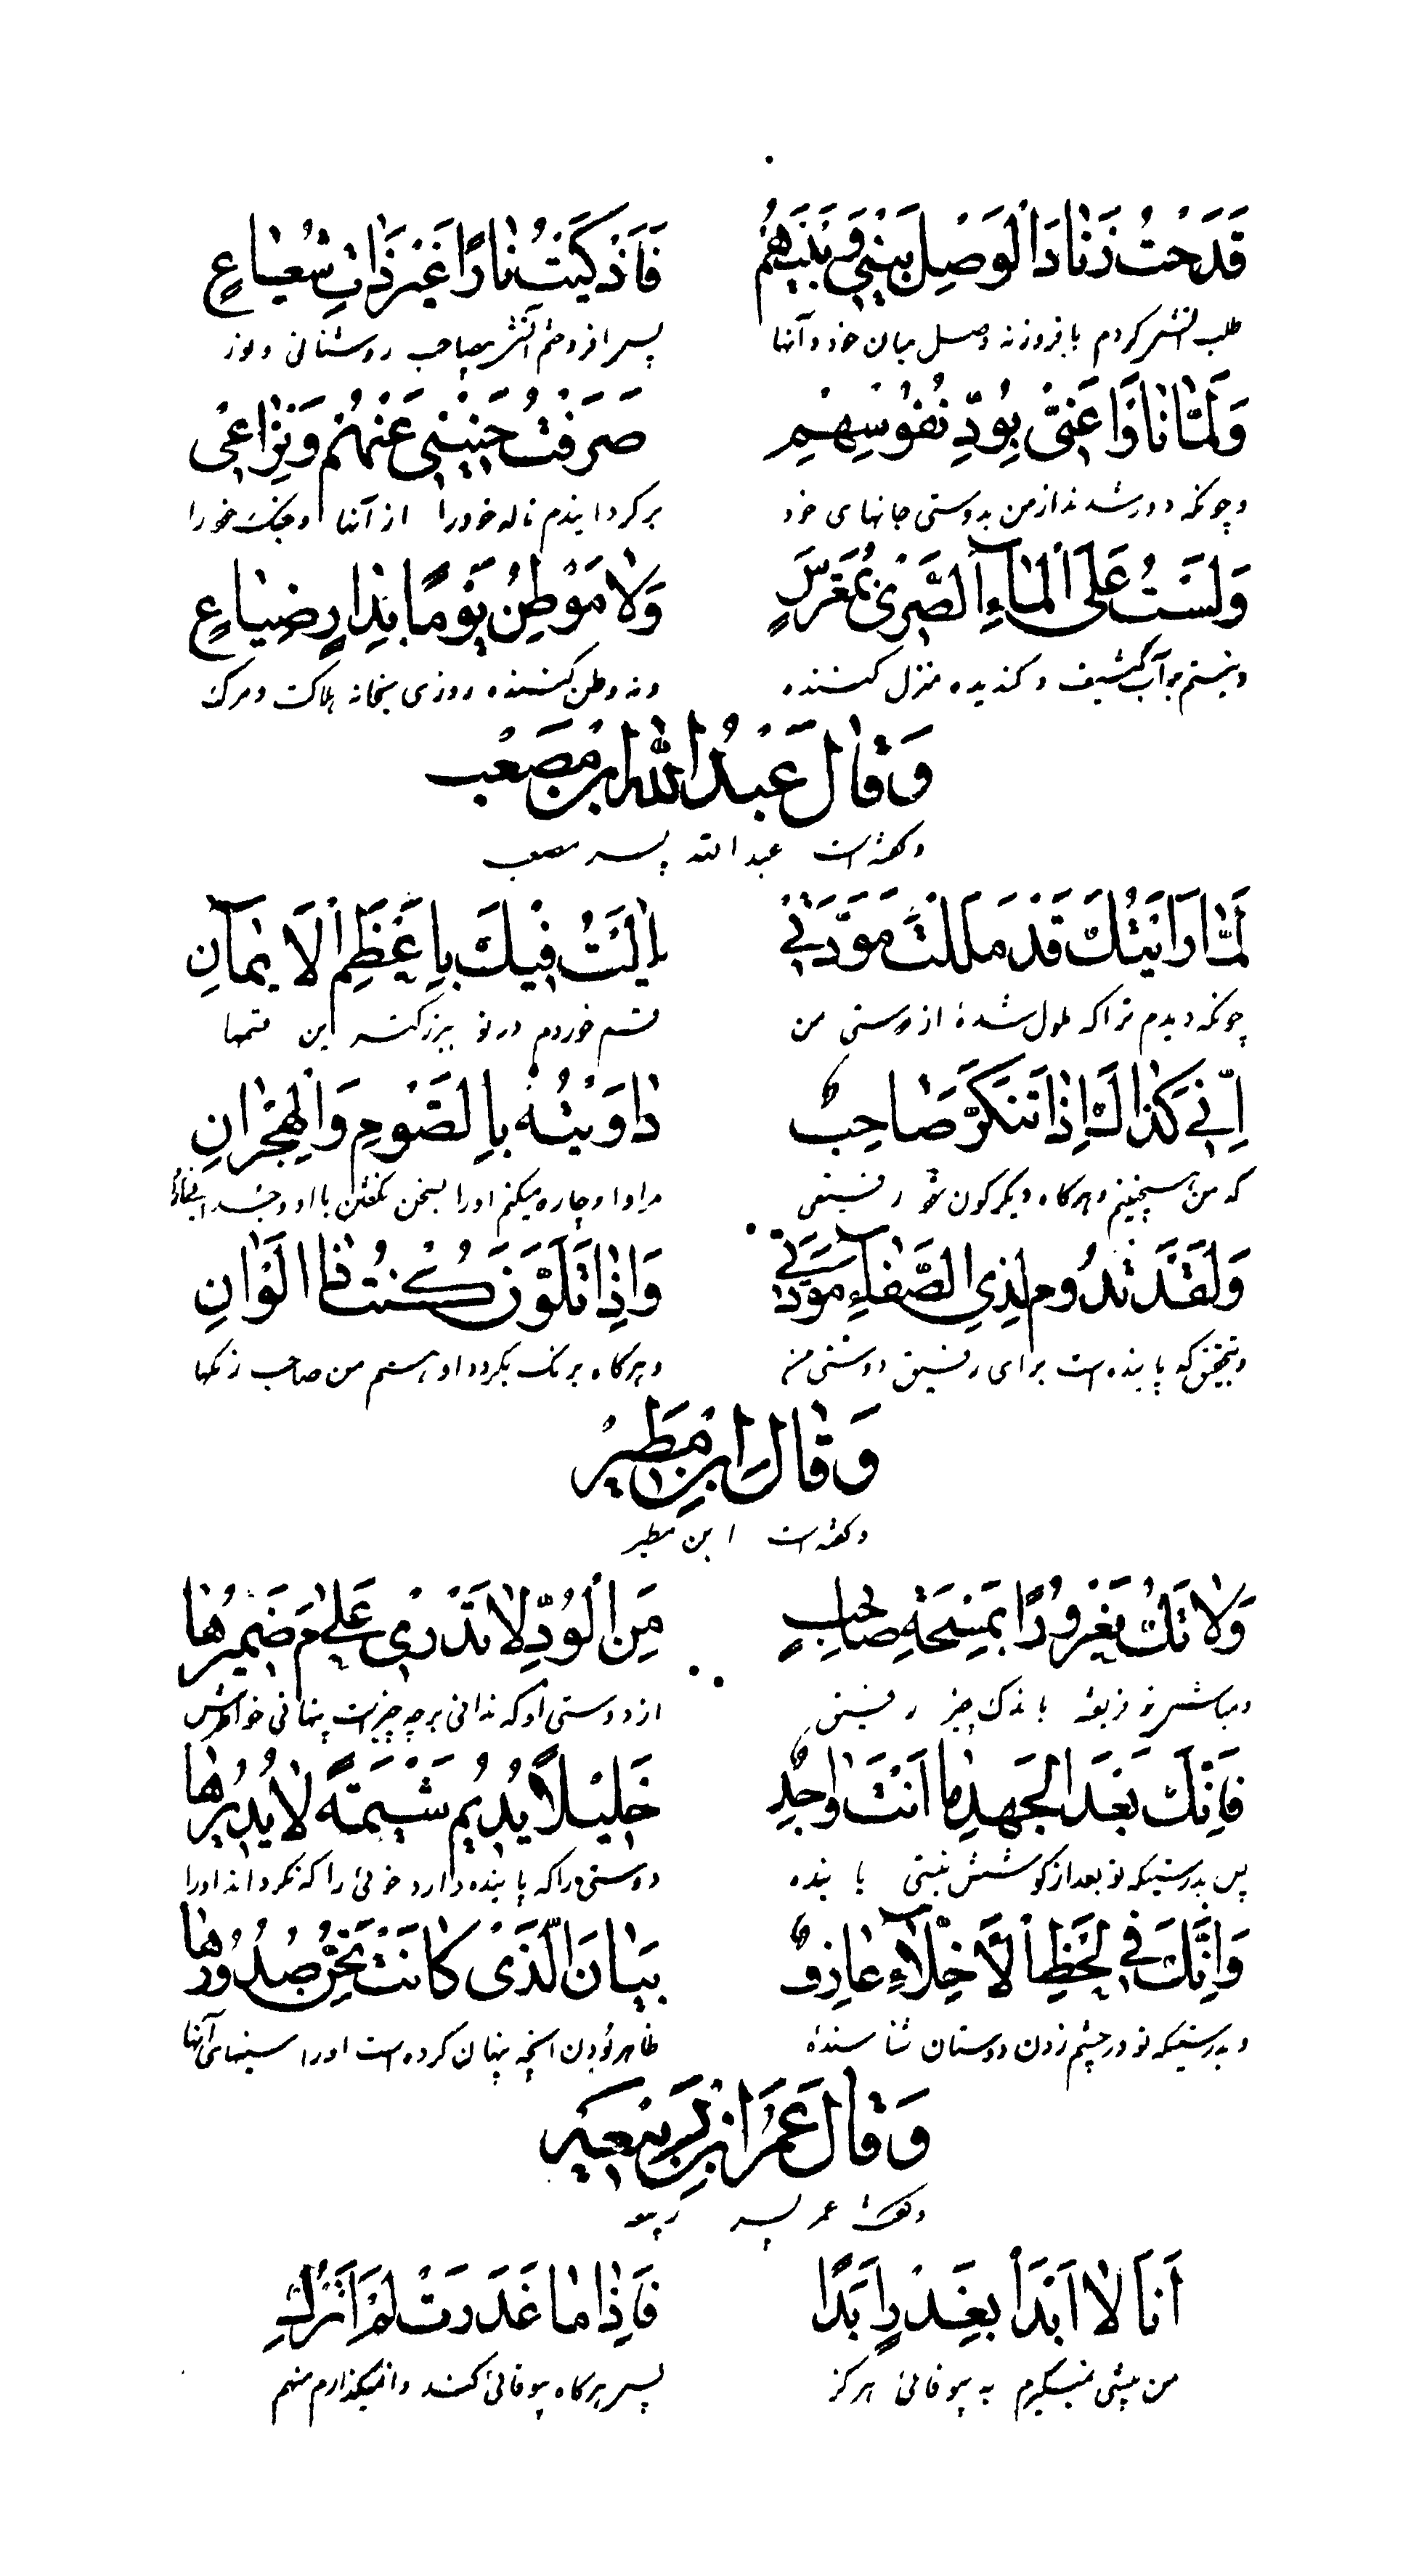 قَدَحْتُ زَنٰادَ الْوَصْلِ بَیْنٖی وَ بَیْنَهُمْ فَاَذْکَیْتُ نٰاراً غَیْرَ ذٰاتِ شُعٰیاعٍ
طلب آتش کردم بافروزنه وصل میان خود و آنها پس افروختم آتش بیصاحب روشنائی و نور
وَلَمّٰا نَاَوْا عَنّٖی بِوُدِّ نُفُوسِهِمْ صَرَفْتُ حَنٖینٖی عَنْهُمْ وَنِزٰاعٖی
و چونکه دور شدند از من بدوستی جانهای خود برکردانیدم ناله خود را از آنها و جنک خود را
وَلَسْتُ عَلَی الْمٰآءِ الصَّرٰی بِمُعَرِّسٍ وَلٰا مُوْطِنٍ یَوْمًا بِدٰارِ ضَیٰاعٍ
و نیستم بر آب کثیف و کندیده منزل کننده و نه وطن کننده روزی بخانه هلاکت و مرک
وَقٰالَ عَبْدُ اللّٰهِ ابْنُ مُصْعَبٍ
و گفته است عبدالله پسر مصعب
لَمّٰا رَاَیْتُكَ قَدْ مَلَلْتَ مَوَدَّتٖی اٰلَیْتُ فٖیكَ بِاَعْظَمِ الْاَیْمٰانِ
چونکه دیدم ترا که ملول شدهٔ از دوستی من قسم خوردم در تو بزرکتر این قسمها
اِنّٖی کَذٰاكَ اِذٰا تَنَکَّرَ صٰاحِبٌ دٰاوَیْتُهُ بِالصَّوْمِ وَالْهِجْرٰانِ
که من همچنینم و هرکاه دیکرکون شود رفیقی مداوا و چاره میکنم او را بسخن نکفتن با او و
وَلَقَدْ تَدُومُ لِذِی الصَّفٰآءِ مَوَدَّتٖی وَاِذٰا تَلَوَّنَ کُنْتُ ذٰا اَلْوٰانِ
و بتحقیق که پاینده است برای رفیق دوستی من و هرکاه برنک بکردد او هستم من صاحب رنکها
وَقٰالَ ابْنُ مُطَیْرٍ
و گفته است ابن مطیر
وَلٰا تَكُ مَغْرُورًا بِمَسْحَةِ صٰاحِبٍ مِنَ الْوُدِّ لٰا تَدْرٖی عَلٰی مَ ضَمٖیرُهٰا
و مباش فریفته باندک چیز رفیق از دوستی او که ندانی بر چه چیز است پنهانی خواهش
فَاِنَّكَ بَعْدَ الْجَهْدِ مٰا اَنْتَ وٰاجِدٌ خَلٖیلاً یُدٖیمُ شٖیمَةً لٰا یُدٖیرُهٰا
پس بدرستیکه تو بعد از کوشش نیستی یابنده دوستی را که پاینده دارد خوئی را که نکرداند او را
وَاِنَّكَ فٖی لَحْظِ الْاَخِلّٰآءِ عٰارِفٌ بَیٰانَ الَّذٖی کٰانَتْ تُجِنُّ صُدُورُهٰا
و بدرستیکه تو در چشم زدن دوستان شناسندهٔ ظاهر بودن آنچه پنهان کرده است او را سینهای آنها
وَقٰالَ عُمَرُ ابْنُ رَبٖیعَةَ
و گفته عمر پسر ربیعه
اَنَا لٰا اَبْدَأُ بِغَدْرٍ اَبَدًا فَاِذٰا مٰا غَدَرَتْ لَمْ اَتْرُكِ
من پیشی نمیکیرم به بیوفائی هرکز پس هرکاه بیوفائی کند وا نمیکذارم منهم